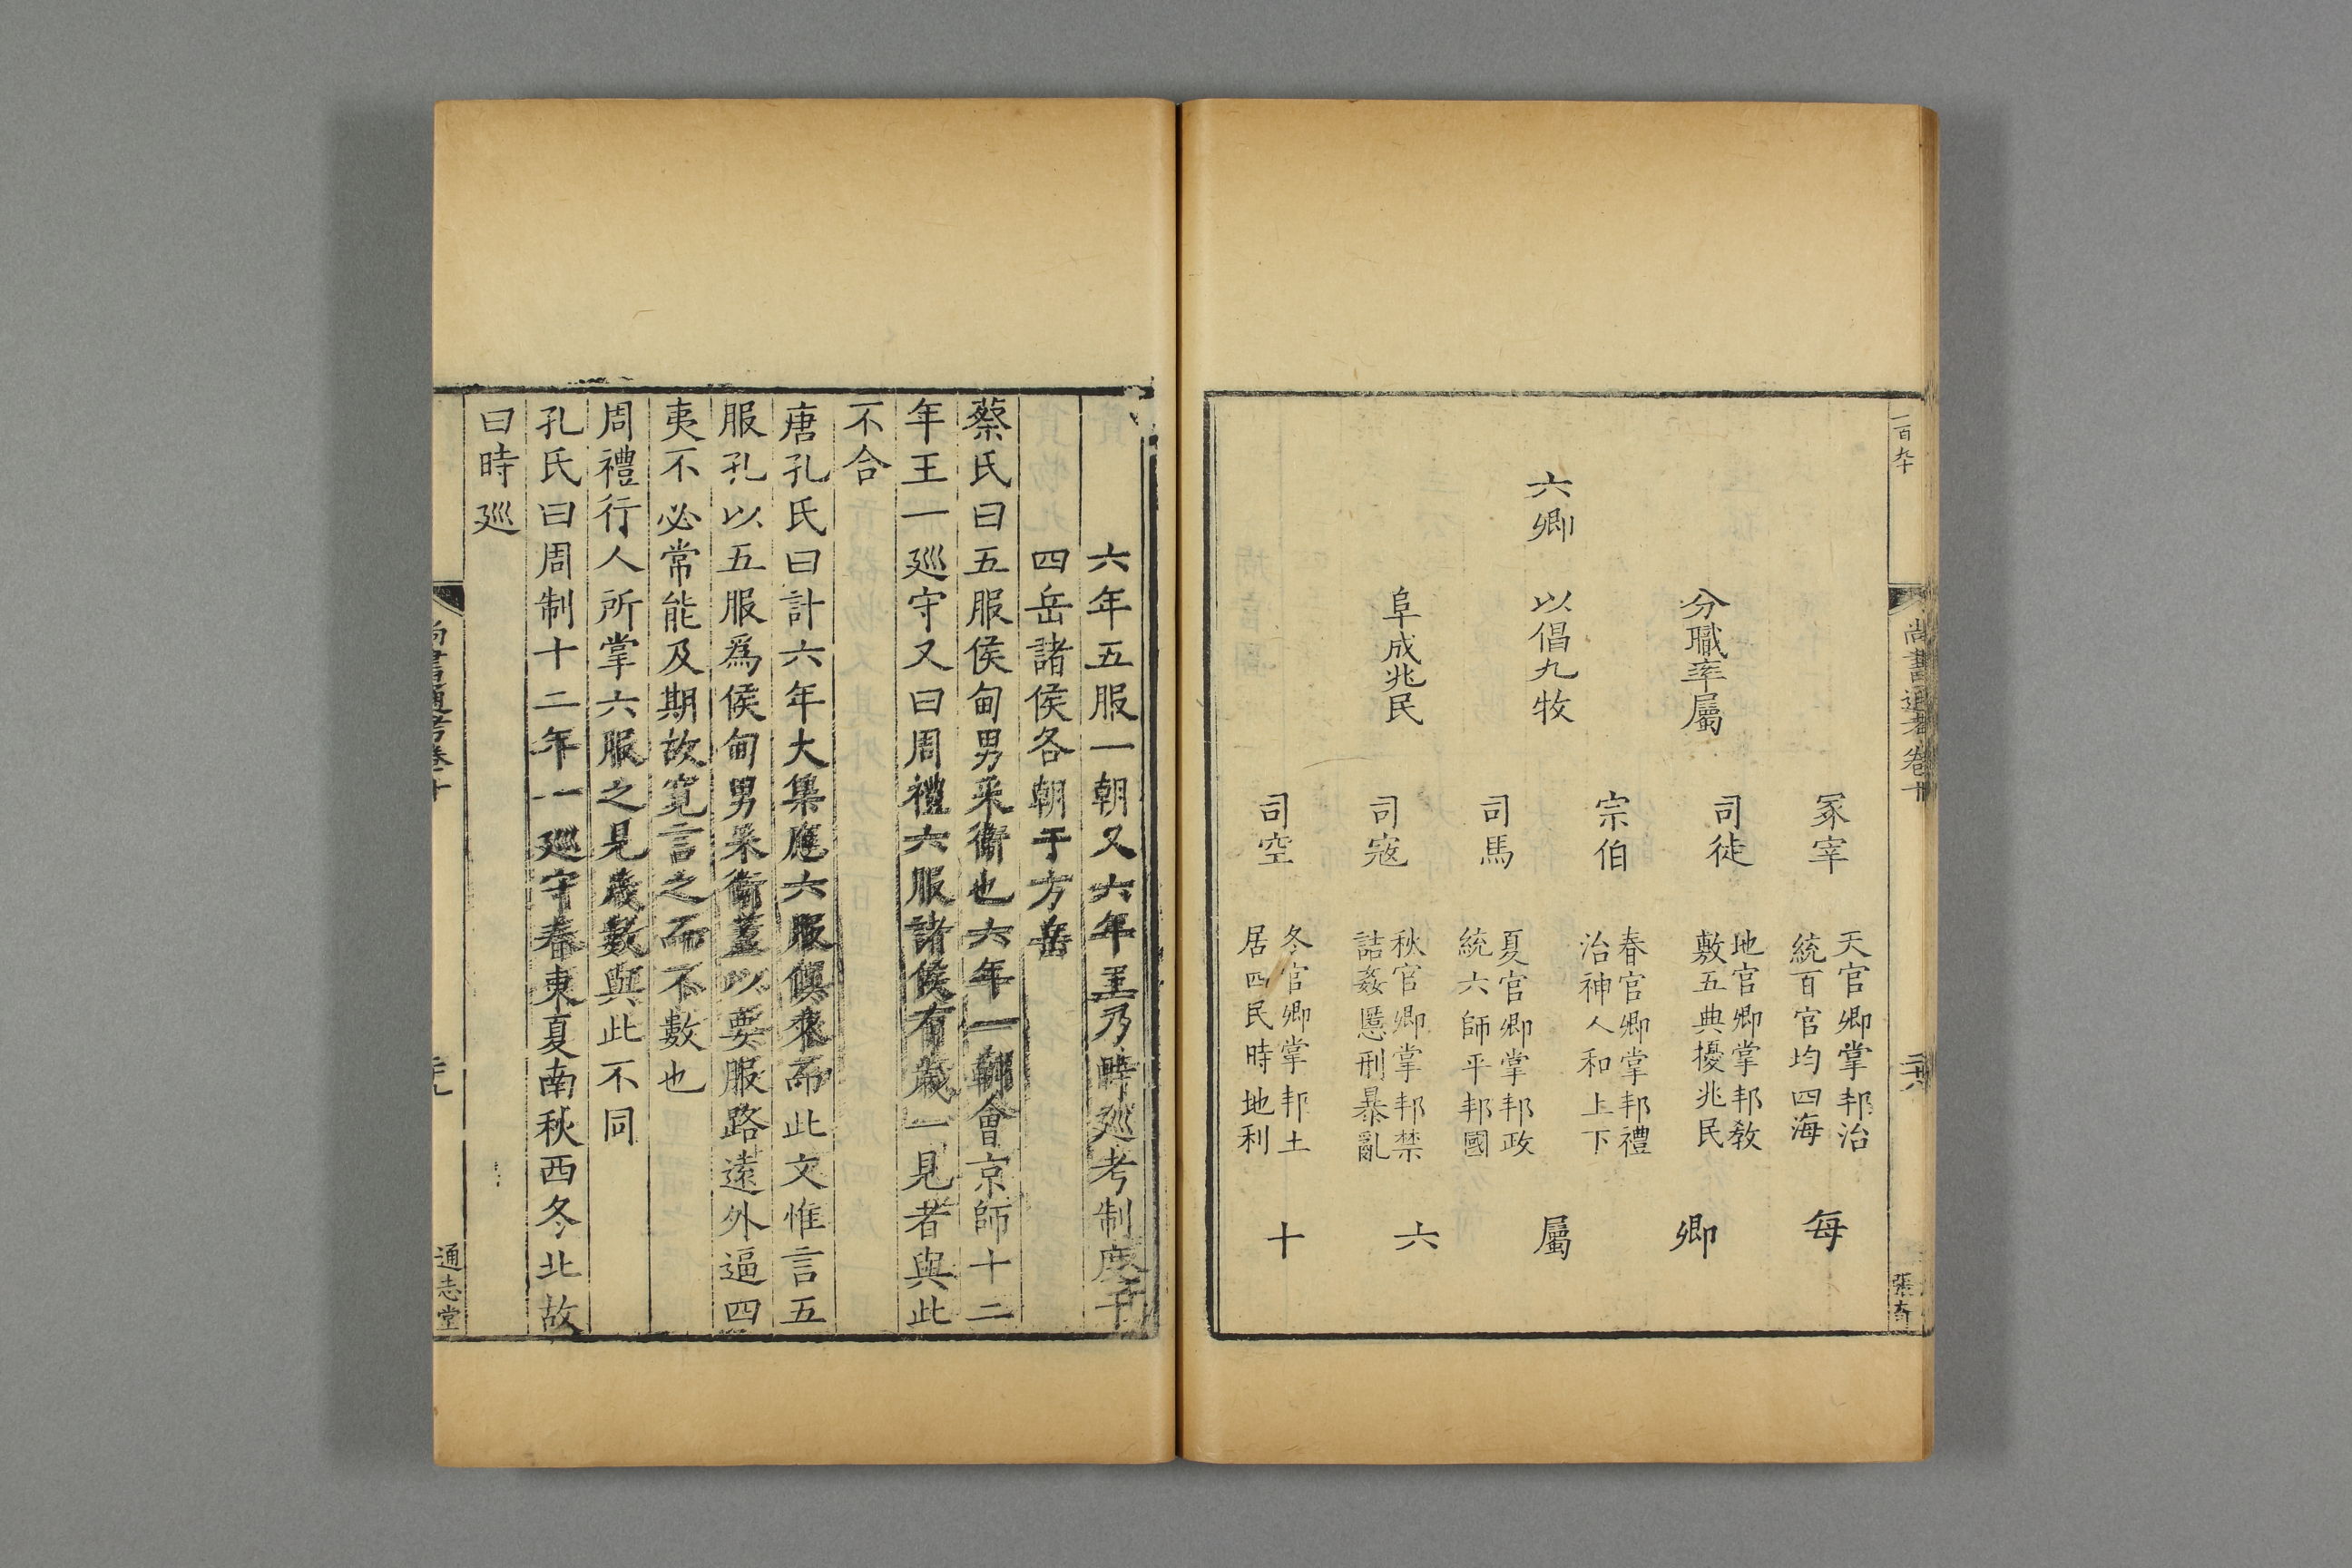 一百九十
尚書通考卷十
二十八
張奇
六卿
分職率屬
以倡九牧
阜成兆民
冢宰
天官卿掌邦治
統百官均四海
司徒
地官卿掌邦教
敷五典擾兆民
宗伯
春官卿掌邦禮
治神人和上下
司馬
夏官卿掌邦政
統六師平邦國
司寇
秋官卿掌邦禁
詰姦慝刑暴亂
司空
冬官卿掌邦土
居四民時地利
每卿屬六十
六年五服一朝又六年王乃時廵考制度于
四岳諸侯各朝于方岳
蔡氏曰五服侯甸男采衞也六年一朝會京師十二
年王一廵守又曰周禮六服諸侯有歲一見者與此
不合
唐孔氏曰計六年大集應六服俱來而此文惟言五
服孔以五服爲侯甸男采衞蓋以要服路遠外逼四
夷不必常能及期故寛言之而不數也
周禮行人所掌六服之見歲數與此不同
孔氏曰周制十二年一廵守春東夏南秋西冬北故
曰時廵
尚書通考卷十
二十九
通志堂